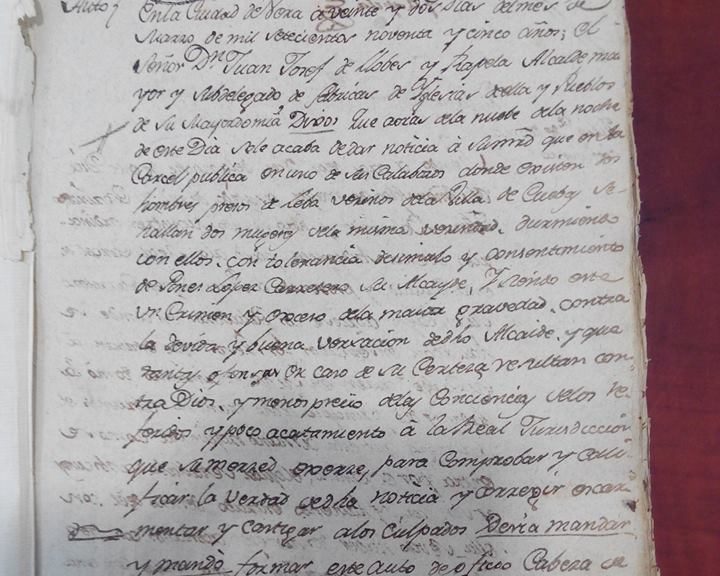 Auto
En la Ciudad de Vera à veinte y dos dias del mes de
Marzo de mil setecientos noventa y cinco años; el
Señor Dn. Juan Josef de llobes y trapela Alcalde ma
yor y subdelegado de fabricas de Yglesias della y Pueblos
de su Mayordomia Dixo: que aoras de la nuebe de la noche
de este Dia se le acaba de dar noticia à su mrd que en la
Carcel publica en uno de sus Calabozos donde existen tres
hombres presos de leba vecinos de la Villa de Cuebas se
hallan dos mugeres de la misma vecindad, durmiendo
con ellos, con tolerancia disimulo y consentimiento
de Gines Lopez Carretero su Alcayde, Y siendo este
un Crimen y exceso de la maior gravedad, contra
la devida y buena versacion de dho Alcaide, y que
tantas ofensas en caso de su Certeza resultan con
tra Dios, y menos precio de las Conciencias de los re
feridos y poco acatamiento à la Real Jurisdiccion
que su merzed exerze, para Comprobar y Cali
ficar la verdad de dha noticia y corregir escar
mentar y castigar a los Culpados Devia mandar
y mandò formar este auto de oficio Cabeza de